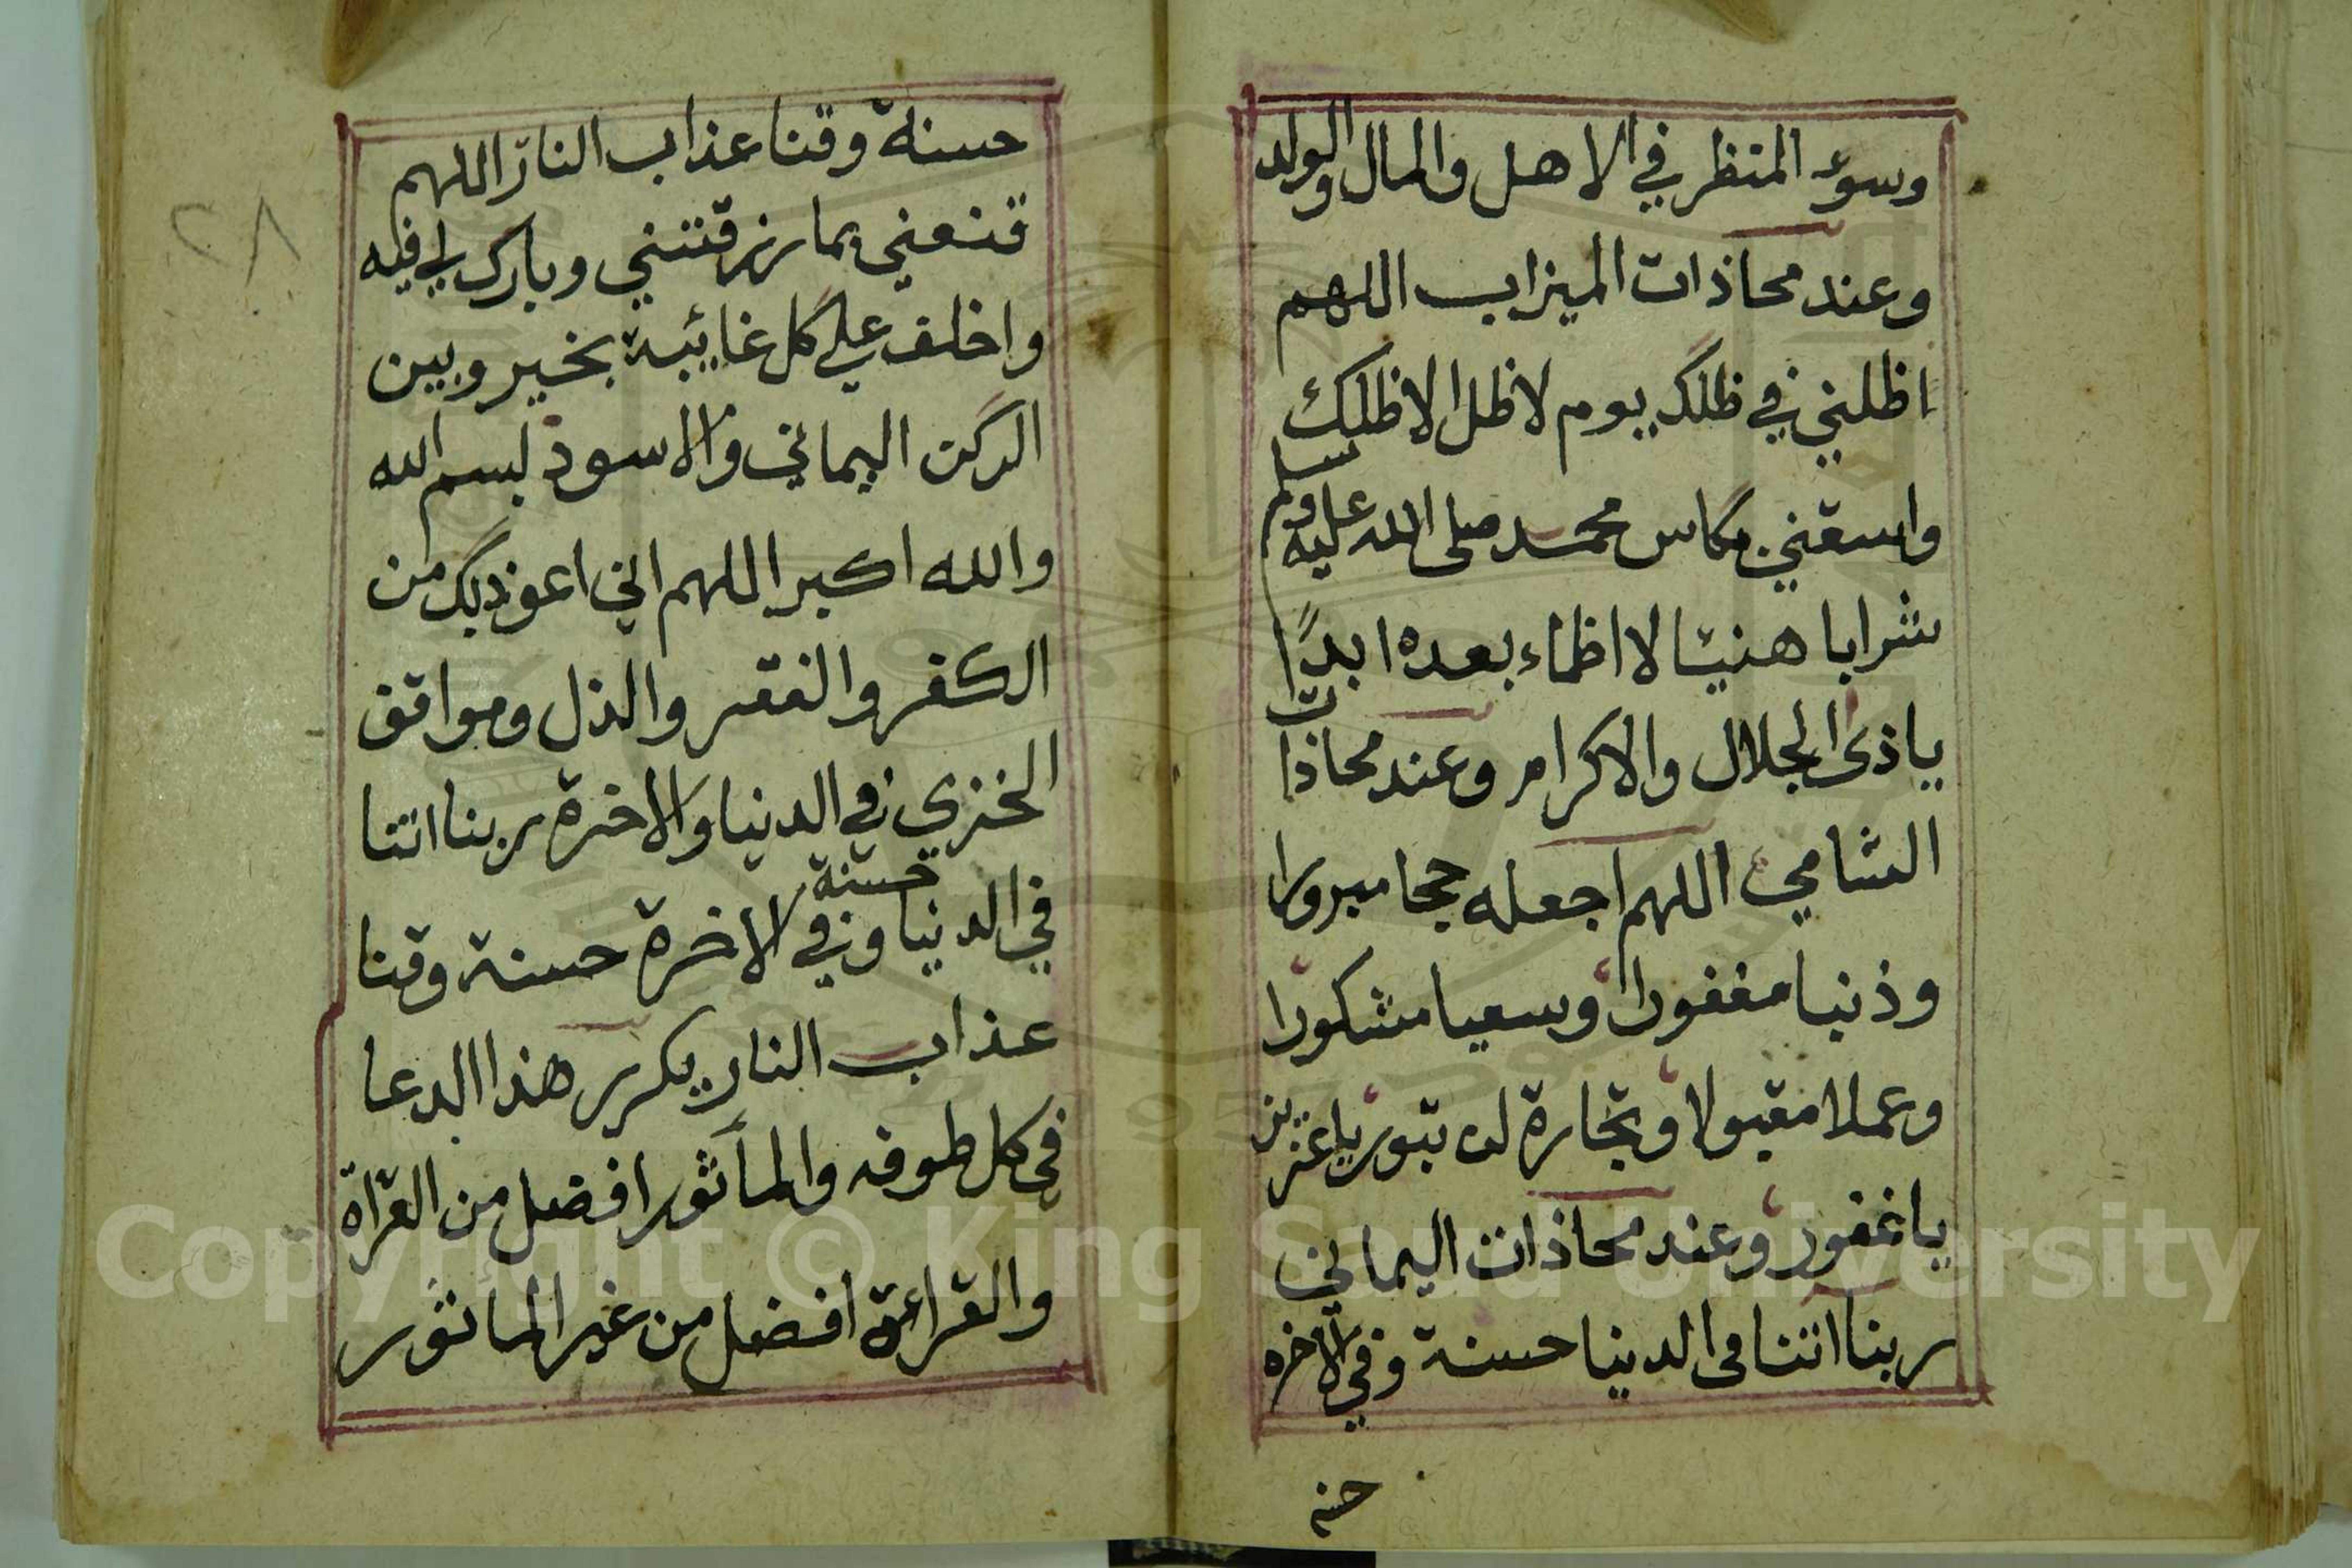 وسوء المنظر في الاهل والمال والولد
وعند محاذات الميزاب اللهم
اظلني في ظلك يوم لا ظل الا ظلك
واسقني بكاس محمد صلى الله عليه وسلم
شرابا هنيئا لا اظماء بعده ابدًا
ياذى الجلال والاكرام وعند محاذات
الشامي اللهم اجعله حجا مبرورا
وذنبا مغفورا وسعيا مشكورا
وعملا مقبولا وتجارة لن تبور ياعزيز
ياغفور وعند محاذات اليماني
ربنا اتنا فى الدنيا حسنة وفي الآخره
حسنه
حسنة وقنا عذاب النار اللهم
قنعني بما رزقتني وبارك لي فيه
واخلف علي كل غائبة بخير وبين
الركن اليماني والاسود بسم الله
والله اكبر اللهم اني اعوذ بك من
الكفر والفقر والذل ومواقف
الخزي في الدنيا والاخرة ربنا اتنا
في الدنيا حسنة وفي الاخرة حسنة وقنا
عذاب النار يكرر هذا الدعا
في كل طوفه والمأثور افضل من القراة
والقراءة افضل من غير الماثور
٢٨
Copyright © King Saud University